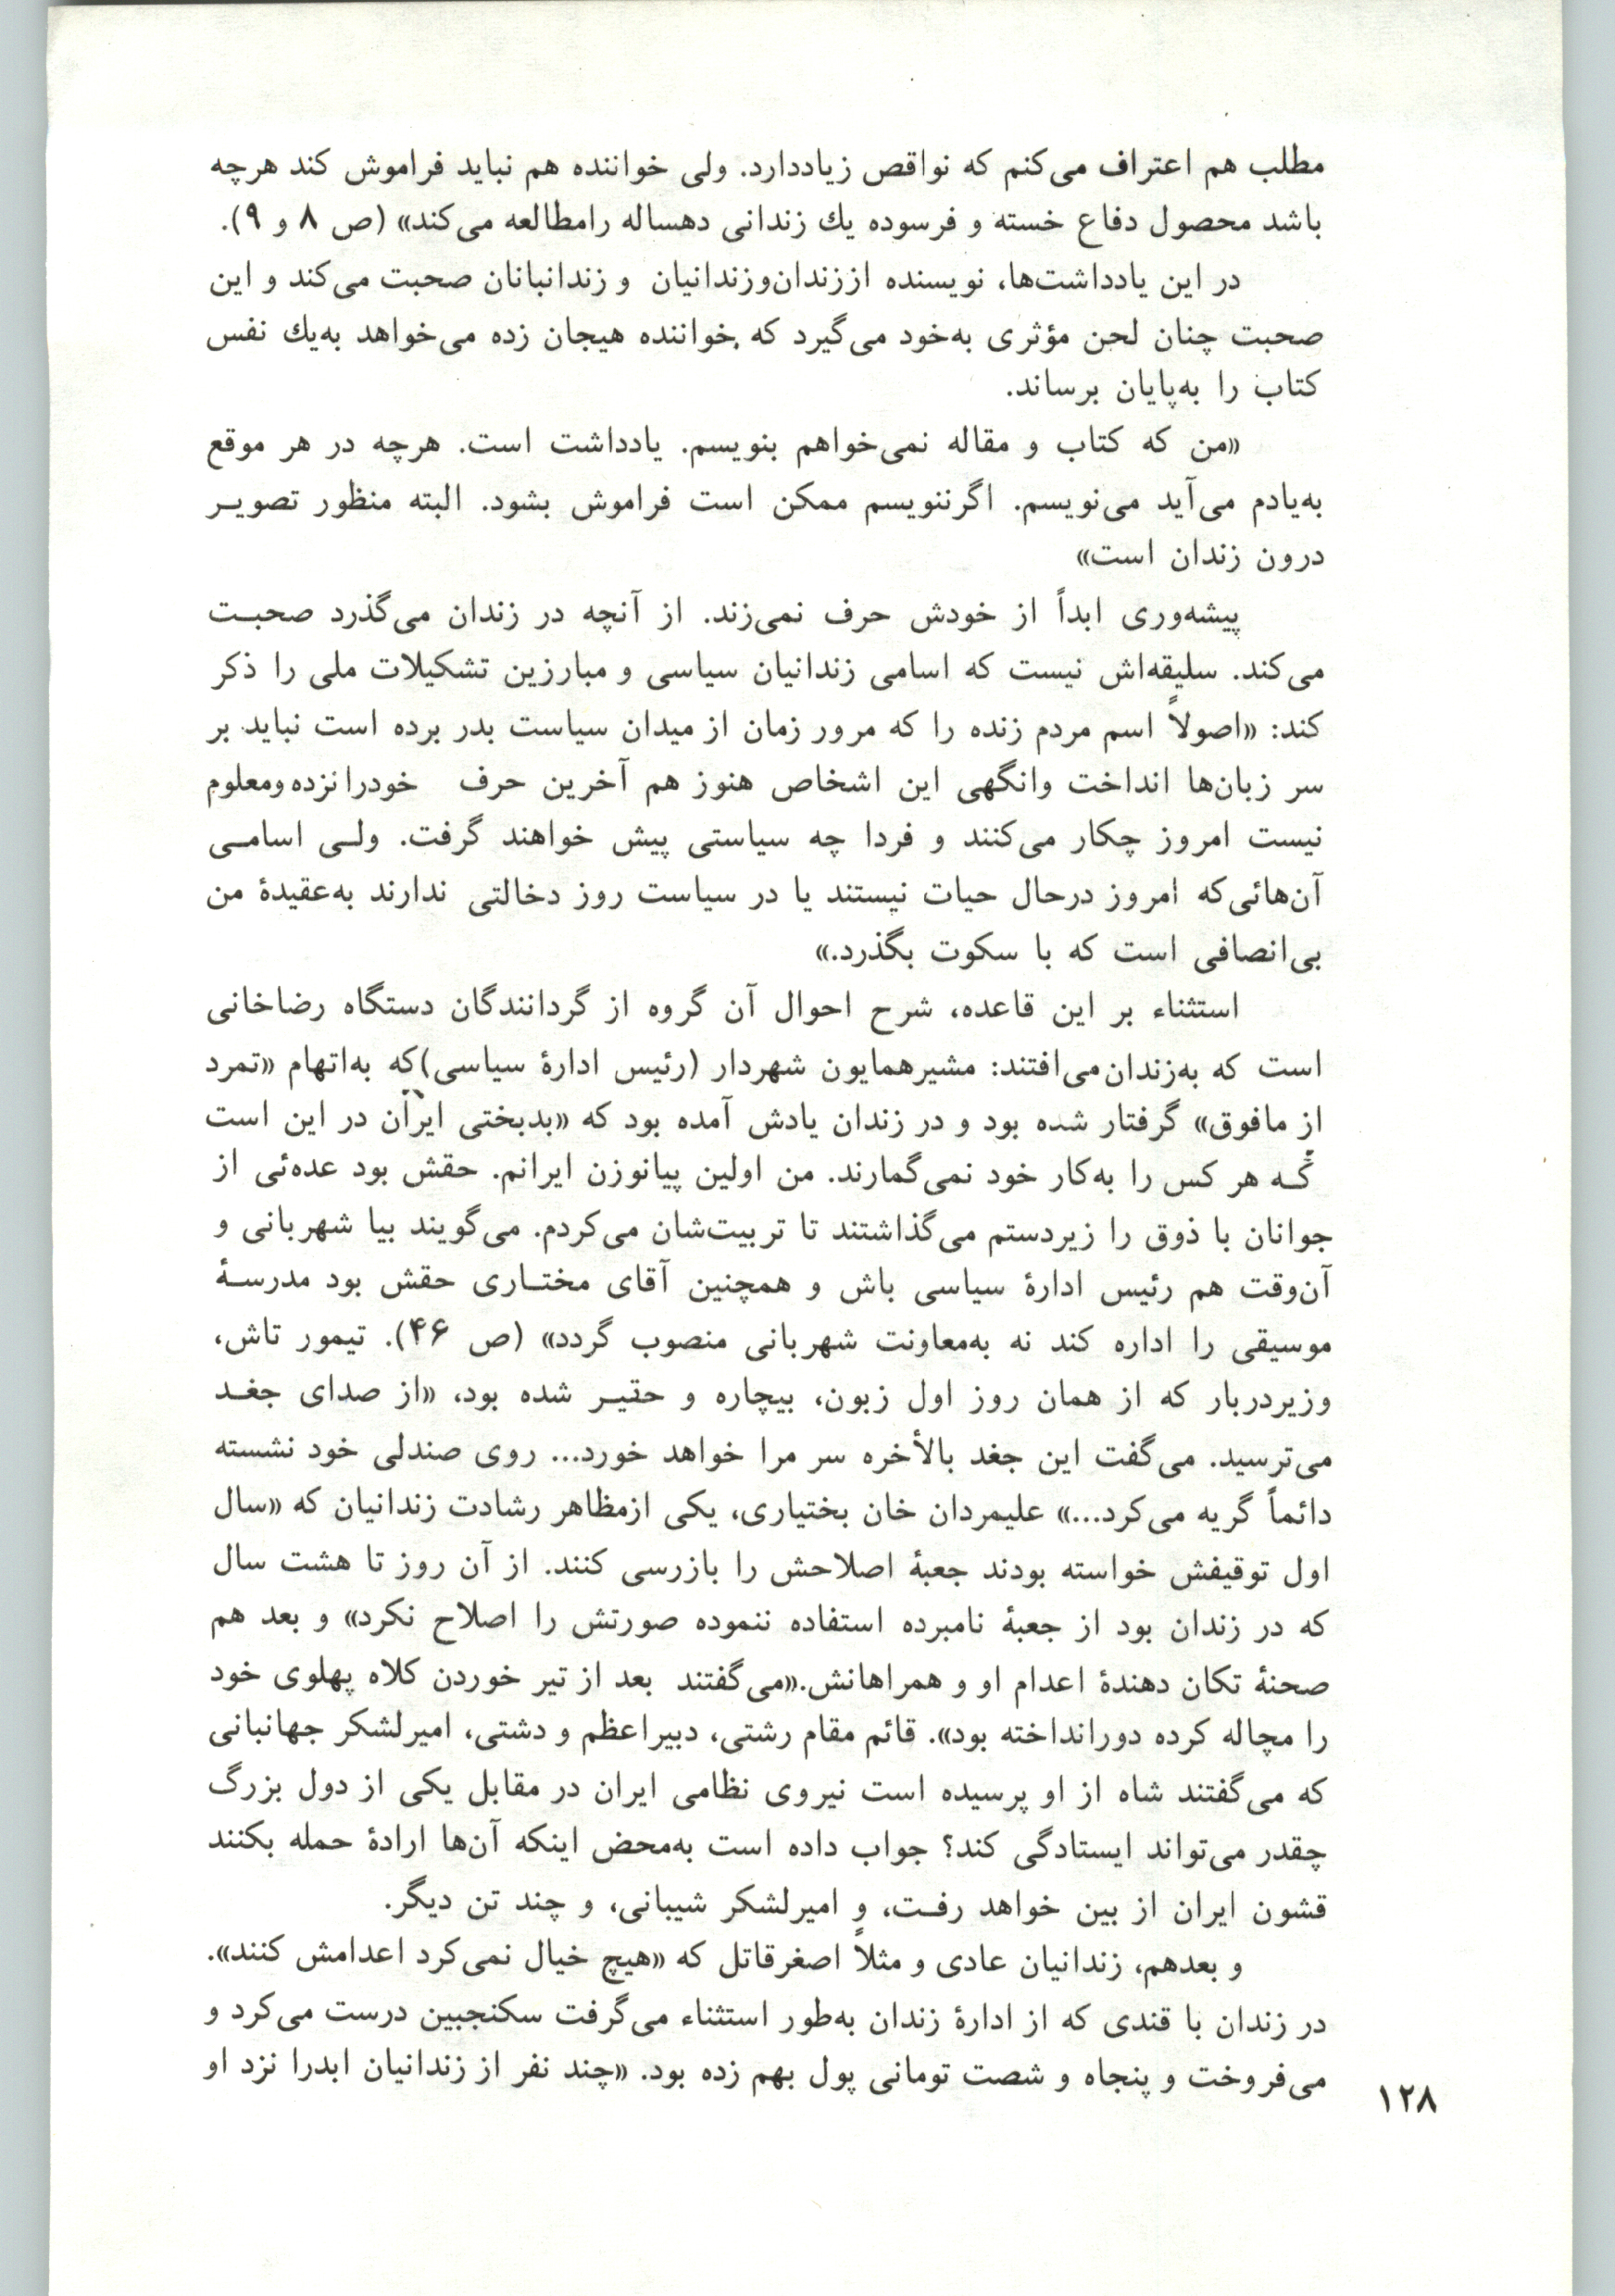 مطلب هم اعتراف می‌کنم که نواقص زیاددارد. ولی خواننده هم نباید فراموش کند هرچه
باشد محصول دفاع خسته و فرسوده یك زندانی دهساله رامطالعه می‌کند» (ص ۸ و ۹).
در این یادداشت‌ها، نویسنده اززندان‌وزندانیان و زندانبانان صحبت می‌کند و این
صحبت چنان لحن مؤثری به‌خود می‌گیرد که خواننده هیجان زده می‌خواهد به‌یك نفس
کتاب را به‌پایان برساند.
«من که کتاب و مقاله نمی‌خواهم بنویسم. یادداشت است. هرچه در هر موقع
به‌یادم می‌آید می‌نویسم. اگرننویسم ممکن است فراموش بشود. البته منظور تصویـر
درون زندان است»
پیشه‌وری ابداً از خودش حرف نمی‌زند. از آنچه در زندان می‌گذرد صحبـت
می‌کند. سلیقه‌اش نیست که اسامی زندانیان سیاسی و مبارزین تشکیلات ملی را ذکر
کند: «اصولاً اسم مردم زنده را که مرور زمان از میدان سیاست بدر برده است نباید بر
سر زبان‌ها انداخت وانگهی این اشخاص هنوز هم آخرین حرف خودرا نزده‌ومعلوم
نیست امروز چکار می‌کنند و فردا چه سیاستی پیش خواهند گرفت. ولـی اسامـی
آن‌هائی‌که امروز درحال حیات نیستند یا در سیاست روز دخالتی ندارند به‌عقیدهٔ من
بی‌انصافی است که با سکوت بگذرد.»
استثناء بر این قاعده، شرح احوال آن گروه از گردانندگان دستگاه رضاخانی
است که به‌زندان‌می‌افتند: مشیرهمایون شهردار (رئیس ادارهٔ سیاسی)که به‌اتهام «تمرد
از مافوق» گرفتار شده بود و در زندان یادش آمده بود که «بدبختی ایران در این است
کـه هر کس را به‌کار خود نمی‌گمارند. من اولین پیانوزن ایرانم. حقش بود عده‌ئی از
جوانان با ذوق را زیردستم می‌گذاشتند تا تربیت‌شان می‌کردم. می‌گویند بیا شهربانی و
آن‌وقت هم رئیس ادارهٔ سیاسی باش و همچنین آقای مختـاری حقش بود مدرسـهٔ
موسیقی را اداره کند نه به‌معاونت شهربانی منصوب گردد» (ص ۴۶). تیمور تاش،
وزیردربار که از همان روز اول زبون، بیچاره و حقیـر شده بود، «از صدای جغـد
می‌ترسید. می‌گفت این جغد بالأخره سر مرا خواهد خورد... روی صندلی خود نشسته
دائماً گریه می‌کرد...» علیمردان خان بختیاری، یکی ازمظاهر رشادت زندانیان که «سال
اول توقیفش خواسته بودند جعبهٔ اصلاحش را بازرسی کنند. از آن روز تا هشت سال
که در زندان بود از جعبهٔ نامبرده استفاده ننموده صورتش را اصلاح نکرد» و بعد هم
صحنهٔ تکان دهندهٔ اعدام او و همراهانش.«می‌گفتند بعد از تیر خوردن کلاه پهلوی خود
را مچاله کرده دورانداخته بود». قائم مقام رشتی، دبیراعظم و دشتی، امیرلشکر جهانبانی
که می‌گفتند شاه از او پرسیده است نیروی نظامی ایران در مقابل یکی از دول بزرگ
چقدر می‌تواند ایستادگی کند؟ جواب داده است به‌محض اینکه آن‌ها ارادهٔ حمله بکنند
قشون ایران از بین خواهد رفـت، و امیرلشکر شیبانی، و چند تن دیگر.
و بعدهم، زندانیان عادی و مثلاً اصغرقاتل که «هیچ خیال نمی‌کرد اعدامش کنند».
در زندان با قندی که از ادارهٔ زندان به‌طور استثناء می‌گرفت سکنجبین درست می‌کرد و
می‌فروخت و پنجاه و شصت تومانی پول بهم زده بود. «چند نفر از زندانیان ابدرا نزد او
۱۲۸